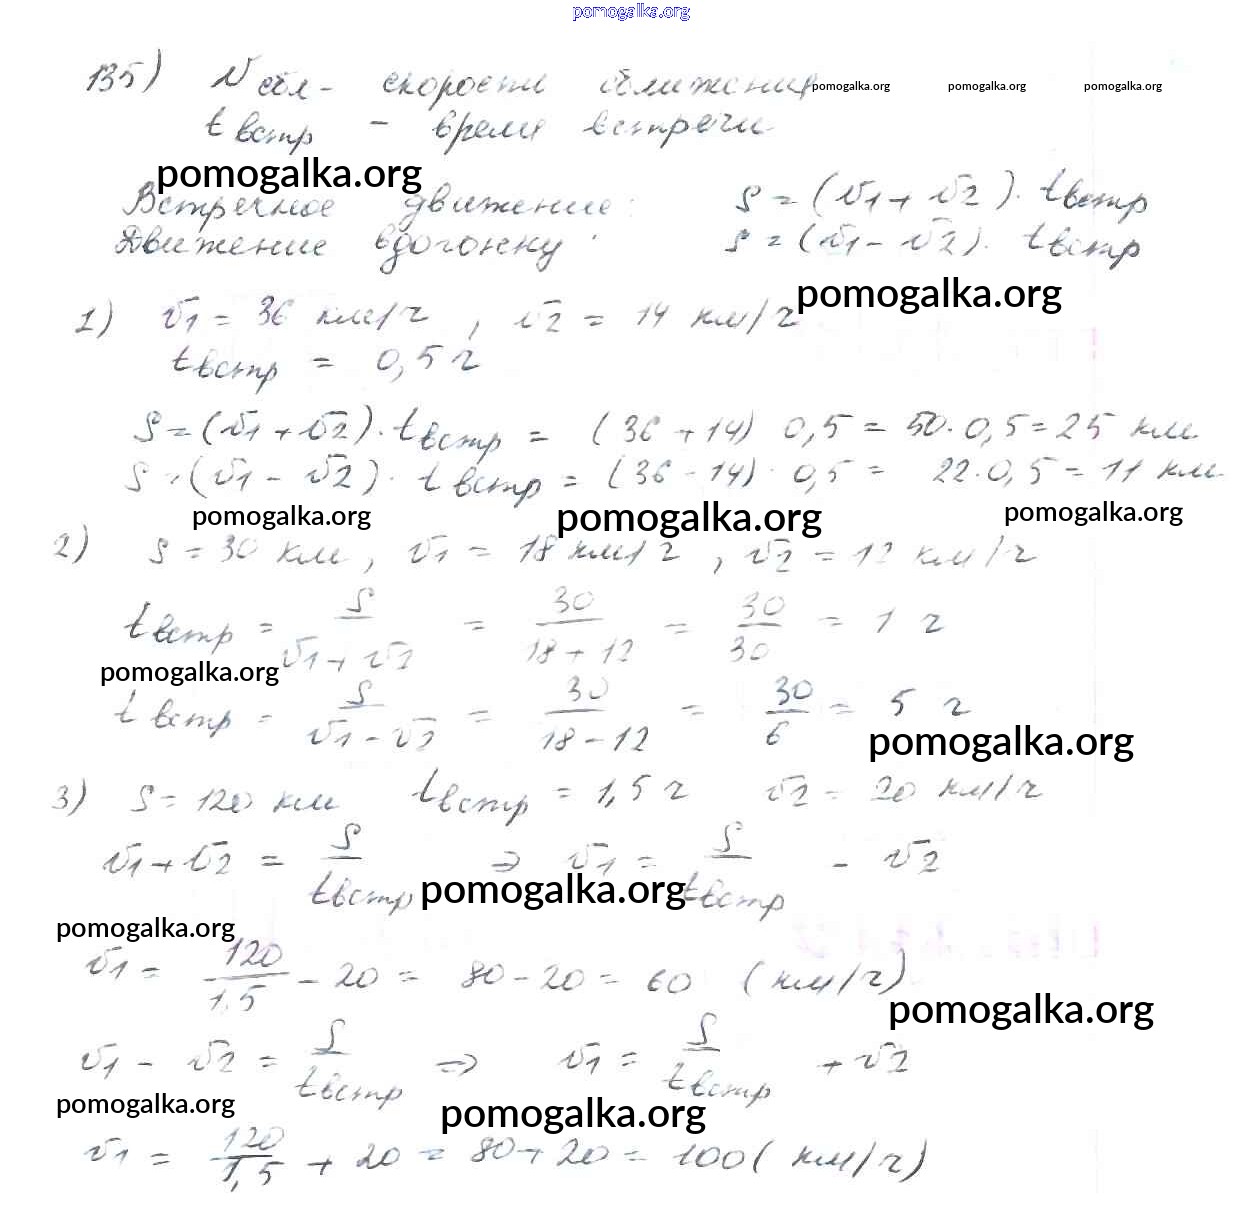 pomogalka.org
135) v сбл - скорость сближения pomogalka.org pomogalka.org pomogalka.org
t встр - время встречи
pomogalka.org
Встречное движение: S = (v1 + v2) · tвстр
Движение вдогонку: S = (v1 - v2) · tвстр
pomogalka.org
1) v1 = 36 км/ч , v2 = 14 км/ч
tвстр = 0,5 ч
S = (v1 + v2) · tвстр = (36 + 14) 0,5 = 50 · 0,5 = 25 км
S = (v1 - v2) · tвстр = (36 - 14) · 0,5 = 22 · 0,5 = 11 км
pomogalka.org pomogalka.org pomogalka.org
2) S = 30 км , v1 = 18 км/ч , v2 = 12 км/ч
tвстр = S/(v1 + v2) = 30/(18 + 12) = 30/30 = 1 ч
pomogalka.org
tвстр = S/(v1 - v2) = 30/(18 - 12) = 30/6 = 5 ч
pomogalka.org
3) S = 120 км tвстр = 1,5 ч v2 = 20 км/ч
v1 + v2 = S/tвстр ⇒ v1 = S/tвстр - v2
pomogalka.org
pomogalka.org
v1 = 120/1,5 - 20 = 80 - 20 = 60 (км/ч)
pomogalka.org
v1 - v2 = S/tвстр ⇒ v1 = S/tвстр + v2
pomogalka.org pomogalka.org
v1 = 120/1,5 + 20 = 80 + 20 = 100 (км/ч)